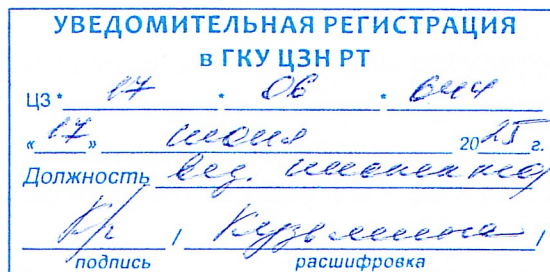 УВЕДОМИТЕЛЬНАЯ РЕГИСТРАЦИЯ
в ГКУ ЦЗН РТ
ЦЗ * 17 * 06 * 644
«17» июня 2025 г.
Должность вед. инспектор
/ Кузьмина /
подпись расшифровка